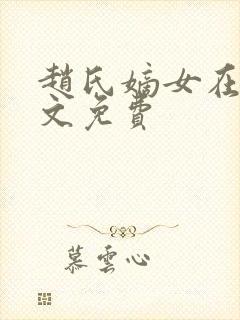 趙氏嫡女在
文免費
慕雲心